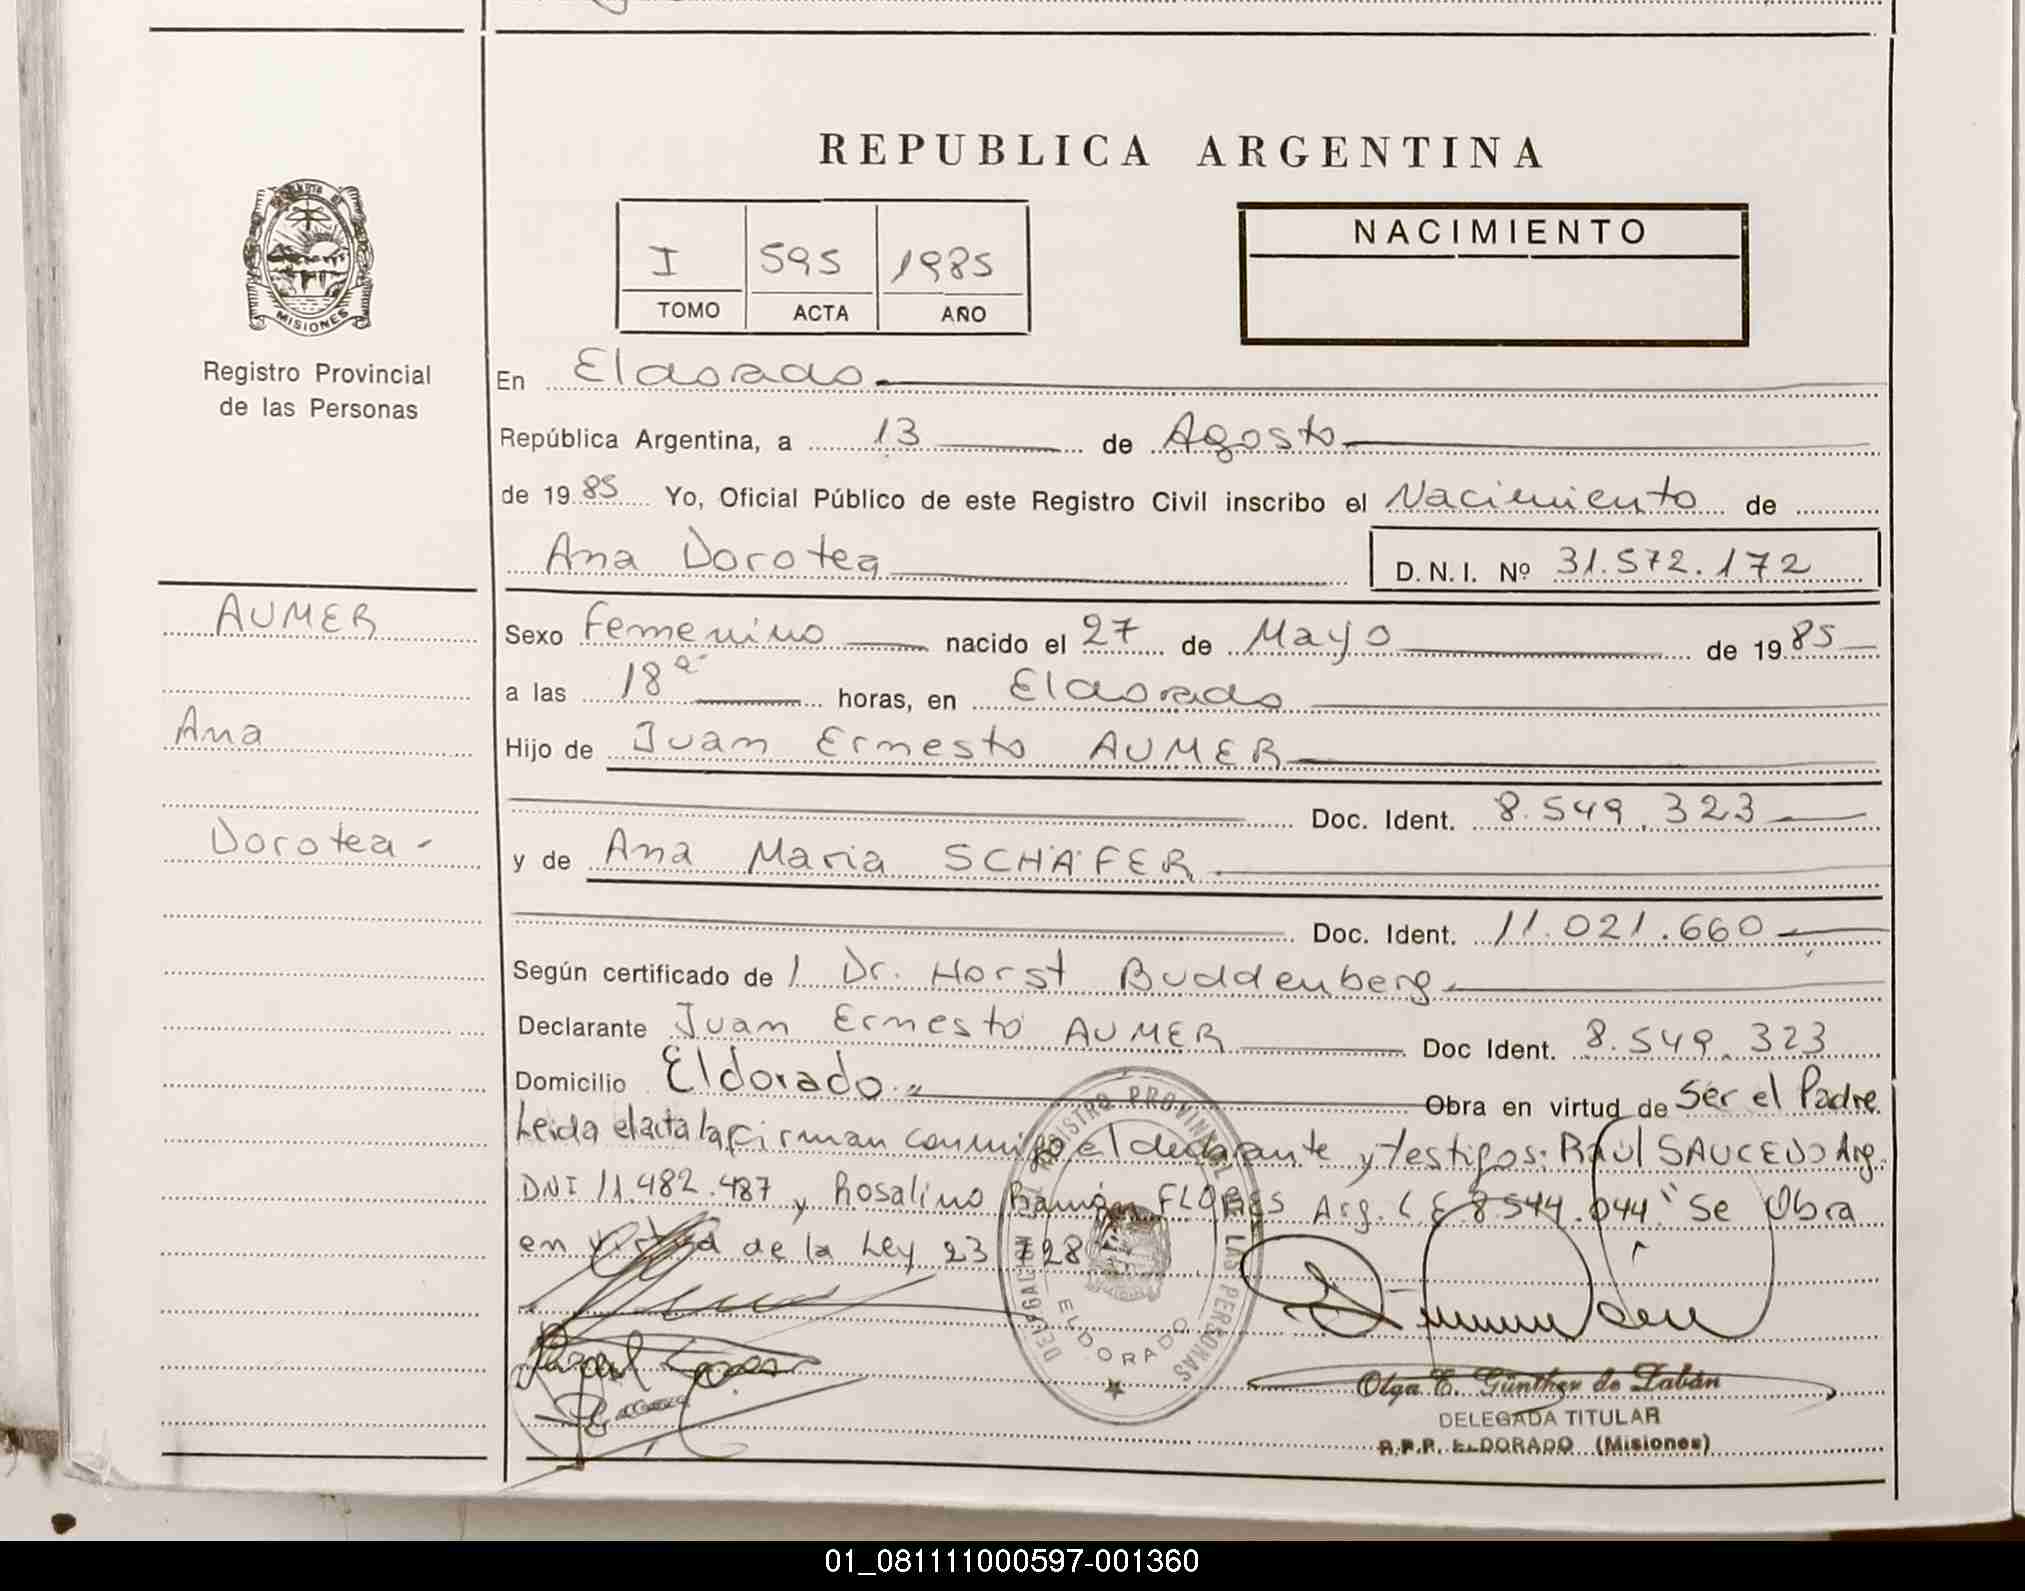 REPUBLICA ARGENTINA
MISIONES
Registro Provincial
de las Personas
I 595 1985
TOMO ACTA AÑO
NACIMIENTO
En Eldorado
República Argentina, a 13 de Agosto
de 1985 Yo, Oficial Público de este Registro Civil inscribo el Nacimiento de
Ana Dorotea D.N.I. Nº 31.572.172
AUMER
Ana
Dorotea -
Sexo Femenino nacido el 27 de Mayo de 1985
a las 18ª horas, en Eldorado
Hijo de Juan Ernesto AUMER
Doc. Ident. 8.549.323
y de Ana Maria SCHÄFER
Doc. Ident. 11.021.660
Según certificado de l Dr. Horst Buddenberg
Declarante Juan Ernesto AUMER Doc Ident. 8.549.323
Domicilio Eldorado Obra en virtud de Ser el Padre.
Leida el acta la firman conmigo el declarante y testigos: Raúl SAUCEDO Arg.
DNI 11.482.487 y Rosalino Ramón FLORES Arg. L E 8544.044 " Se Obra
en virtud de la Ley 23 128
DELEGACION REGISTRO PROVINCIAL DE LAS PERSONAS
ELDORADO
Olga E. Günther de Zabán
DELEGADA TITULAR
R.P.P. ELDORADO (Misiones)
01_081111000597-001360